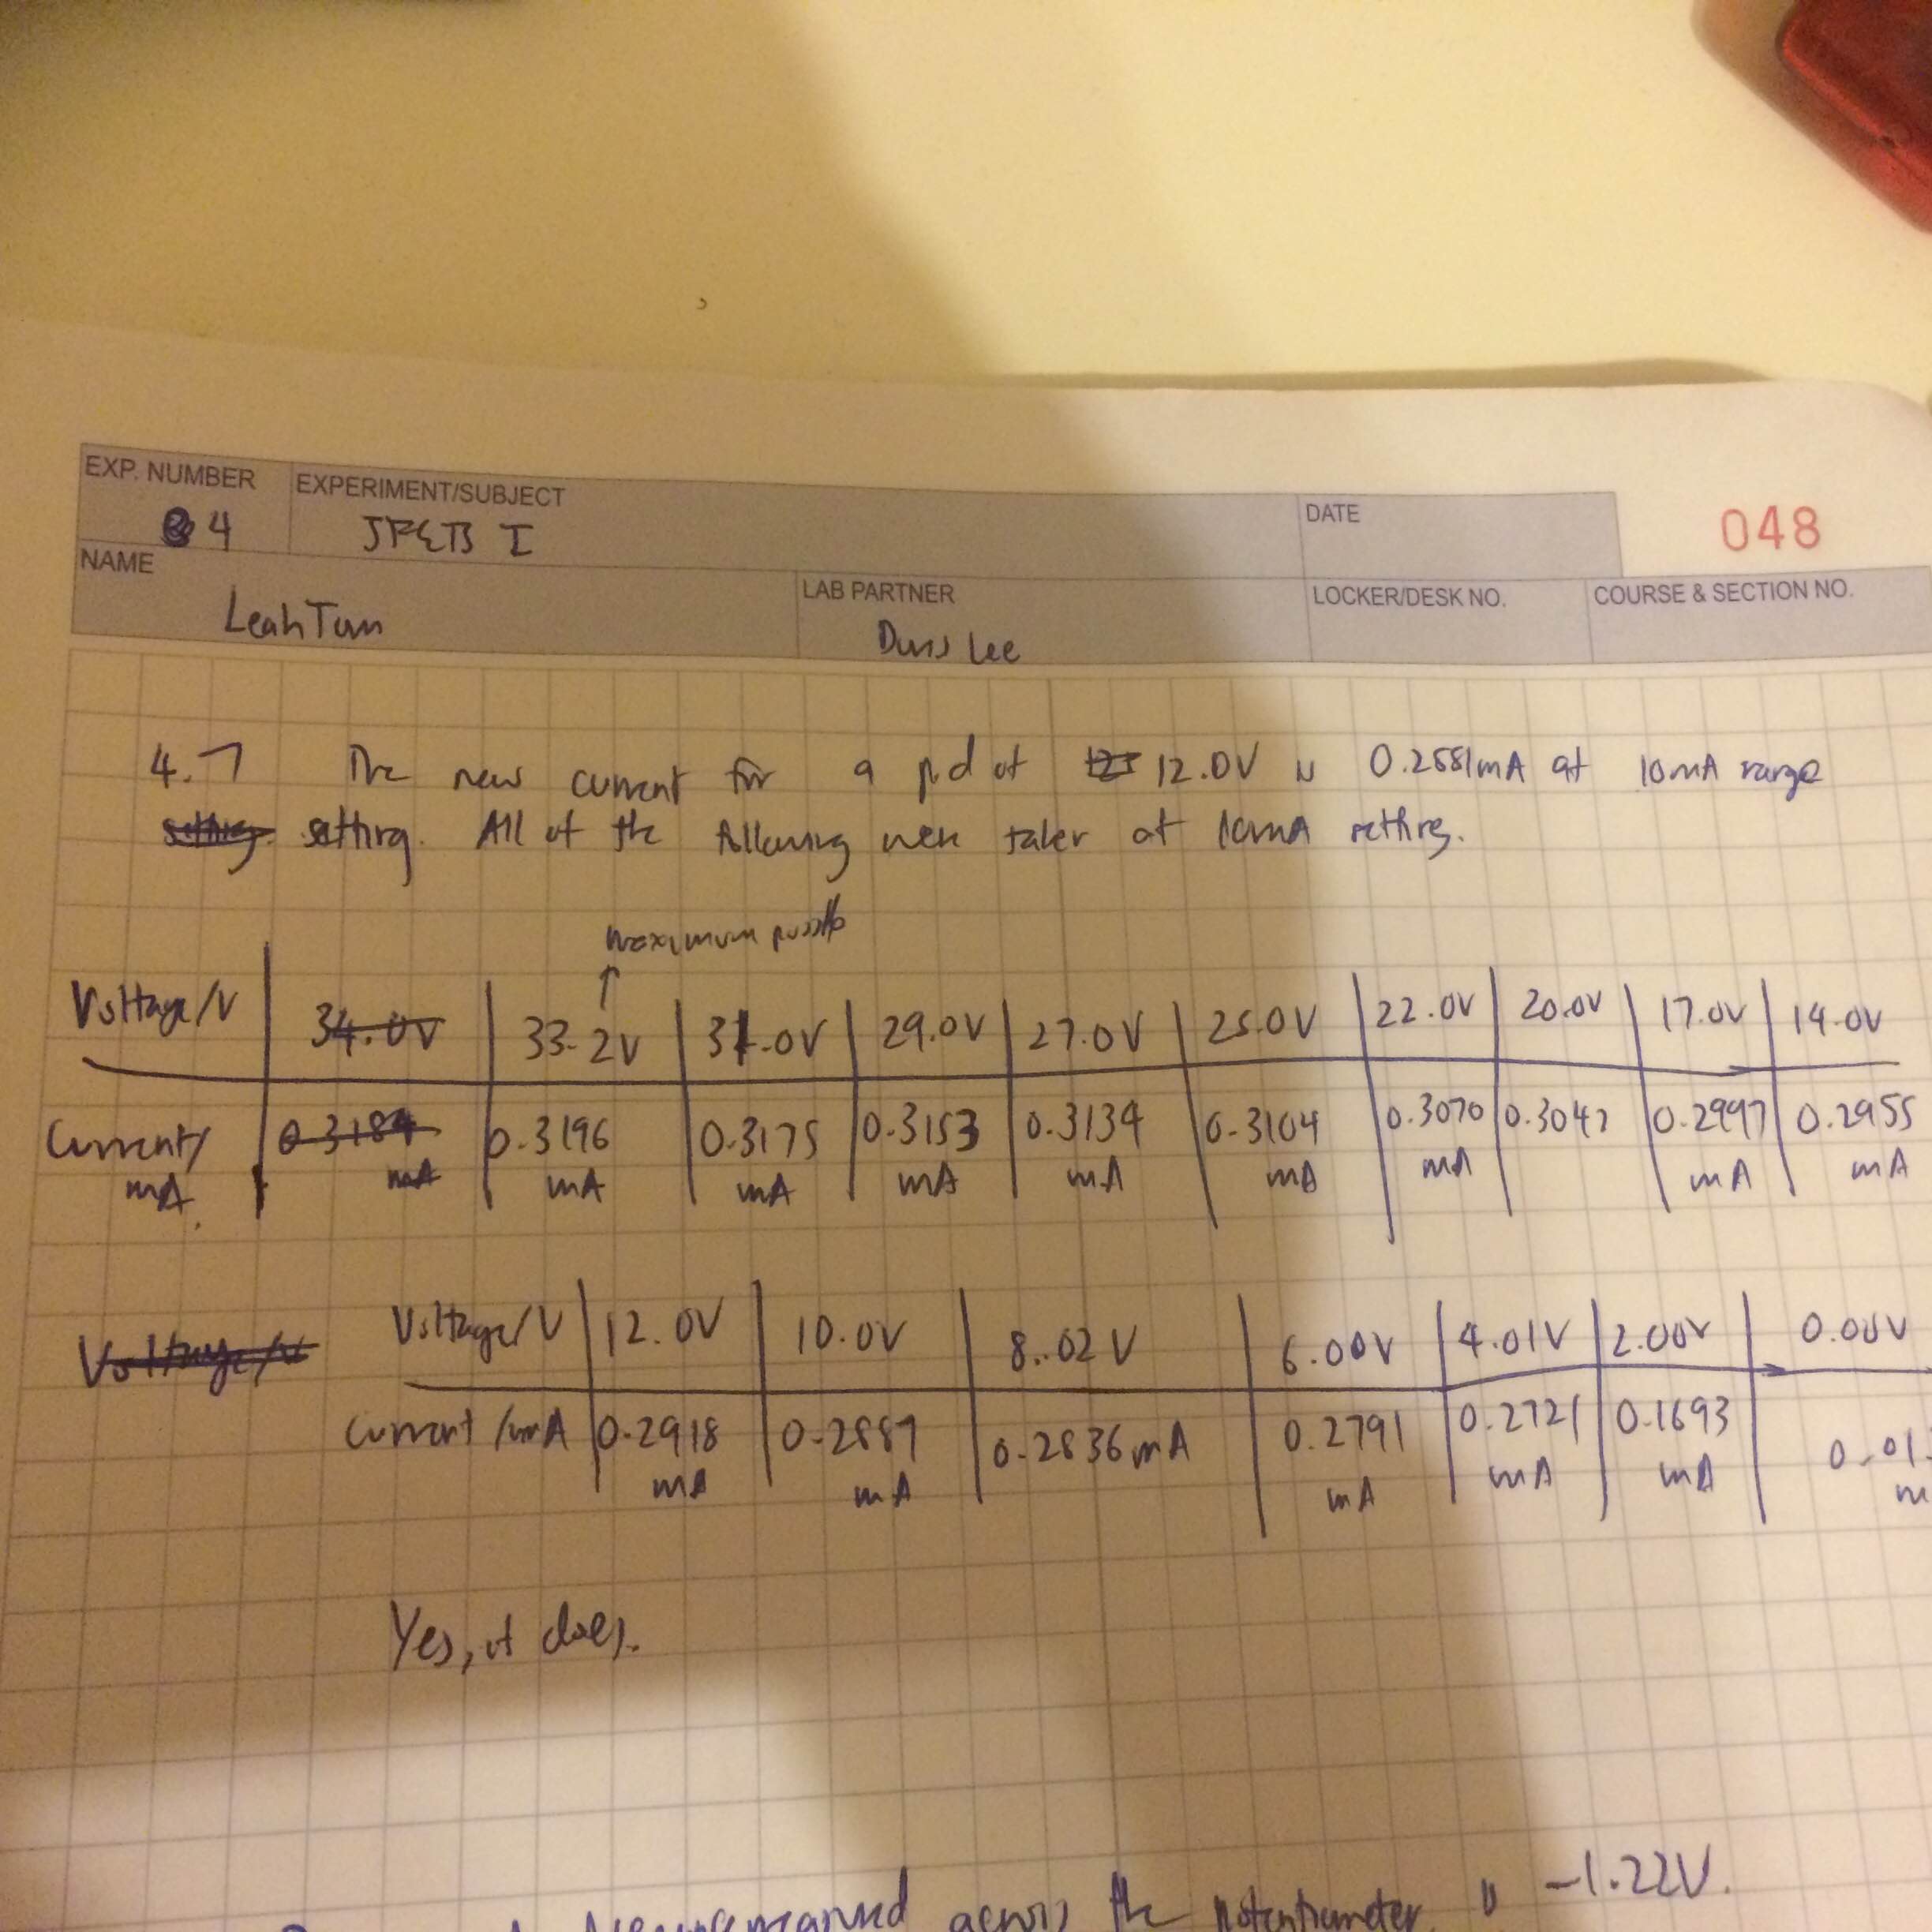 EXP. NUMBER EXPERIMENT/SUBJECT DATE 048
4 JFETs I
NAME LAB PARTNER LOCKER/DESK NO. COURSE & SECTION NO.
Leah Tan Lee
4.7 The new current for a pd of 12.0V is 0.2881mA at 10mA range
setting. All of the following were taken at 10mA setting.
maximum possible
Voltage/V 34.0V 33.2V 31.0V 29.0V 27.0V 25.0V 22.0V 20.0V 17.0V 14.0V
Current/ 0.3184 0.3196 0.3175 0.3153 0.3134 0.3104 0.3070 0.3047 0.2997 0.2955
mA mA mA mA mA mA mA mA mA mA
Voltage/V Voltage/V 12.0V 10.0V 8.02V 6.00V 4.01V 2.00V 0.00V
Current/mA 0.2918 0.2887 0.2836mA 0.2791 0.2721 0.1693 0.01
mA mA mA mA mA
Yes, it does.
measured across the potentiometer is -1.22V.